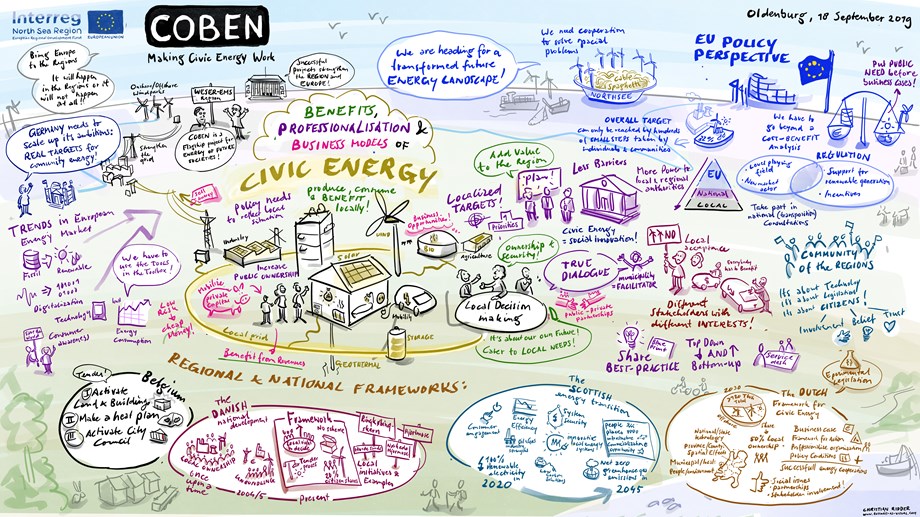 Interreg
North Sea Region
European Regional Development Fund
EUROPEAN UNION
COBEN
Making Civic Energy Work
Oldenburg, 18 September 2019
Bring Europe
to the Regions
It will happen
in the Regions or it
will not happen
at all!
Onshore/Offshore
Windpark
WESER-EMS
Region
Successful
projects strengthen
the REGION and
EUROPE!
COBEN is a
Flagship project for
ENERGY OF FUTURE
SOCIETIES!
GERMANY needs to
scale up its ambitions:
REAL TARGETS for
community energy!
We are heading for a
transformed future
ENERGY LANDSCAPE!
We need cooperation
to solve special
problems
Cable
Spaghetti
NORTHSEE
EU POLICY
PERSPECTIVE
Put PUBLIC
NEED before
business cases!
OVERALL TARGET
can only be reached by hundreds
of SMALL STEPS taken by
individuals & communities
We have to
go beyond a
COST-BENEFIT
Analysis
REGULATION
Level playing
field
Support for
renewable generation
Incentives
EU
National
LOCAL
Take part in
national (transposition)
Consultations
BENEFITS,
PROFESSIONALISATION &
BUSINESS MODELS OF
CIVIC ENERGY
Policy needs
to reflect local
situation
produce, consume
& BENEFIT
locally!
Add Value
to the Region
Plan!
Less Barriers
More Power to
local & regional
authorities
Localized
TARGETS!
Priorities
Civic Energy
= social innovation!
TRENDS in European
Energy Market
Fossil
Renewable
Digitalization
Technology
Energy
Consumption
Consumer
awareness
We have to
use the Tools
in the Toolbox!
Low
RISK
cheap
money!
Industry
Solar
WIND
Business-
Opportunities!
BIO
agriculture
Increase
PUBLIC OWNERSHIP
public
private
Local Decision
making
Ownership &
security!
TRUE
DIALOGUE
municipality
= FACILITATOR
public-private
partnerships
Mobility
STORAGE
GEOTHERMAL
Local grid
Benefit from Revenues
It's about our own Future!
Cater to LOCAL NEEDS!
NO
Local
acceptance
Different
Stakeholders with
different INTERESTS!
Share
BEST-PRACTICE
Top Down
AND
Bottom-up
COMMUNITY
OF the REGIONS
It's about Technology
It's about legislation
It's about CITIZENS!
Involvement
Belief
Trust
Experimental
Legislation
REGIONAL & NATIONAL FRAMEWORKS:
Tender!
Belgium
I Activate
Land & Buildings
II Make a heat plan
III Activate City
Council
The
DANISH
national
development
LOCAL OWNERSHIP
Once
upon a
time
2004/5
Framework
present
Local
initiatives &
Examples
The
SCOTTISH
energy transition
Consumer
engagement
Energy
Efficiency
System
Security
Innovative
local energy
systems
100%
renewable
electricity
2020
Net zero
greenhouse gas
emissions in
2045
2030
2020
The DUTCH
Framework for
Civic Energy
50% Local
Ownership
Business case
Framework for action
Policy Conditions
Successful energy cooperatives
Social issues
partnerships
stakeholder involvement!
CHRISTIAN RIDDER